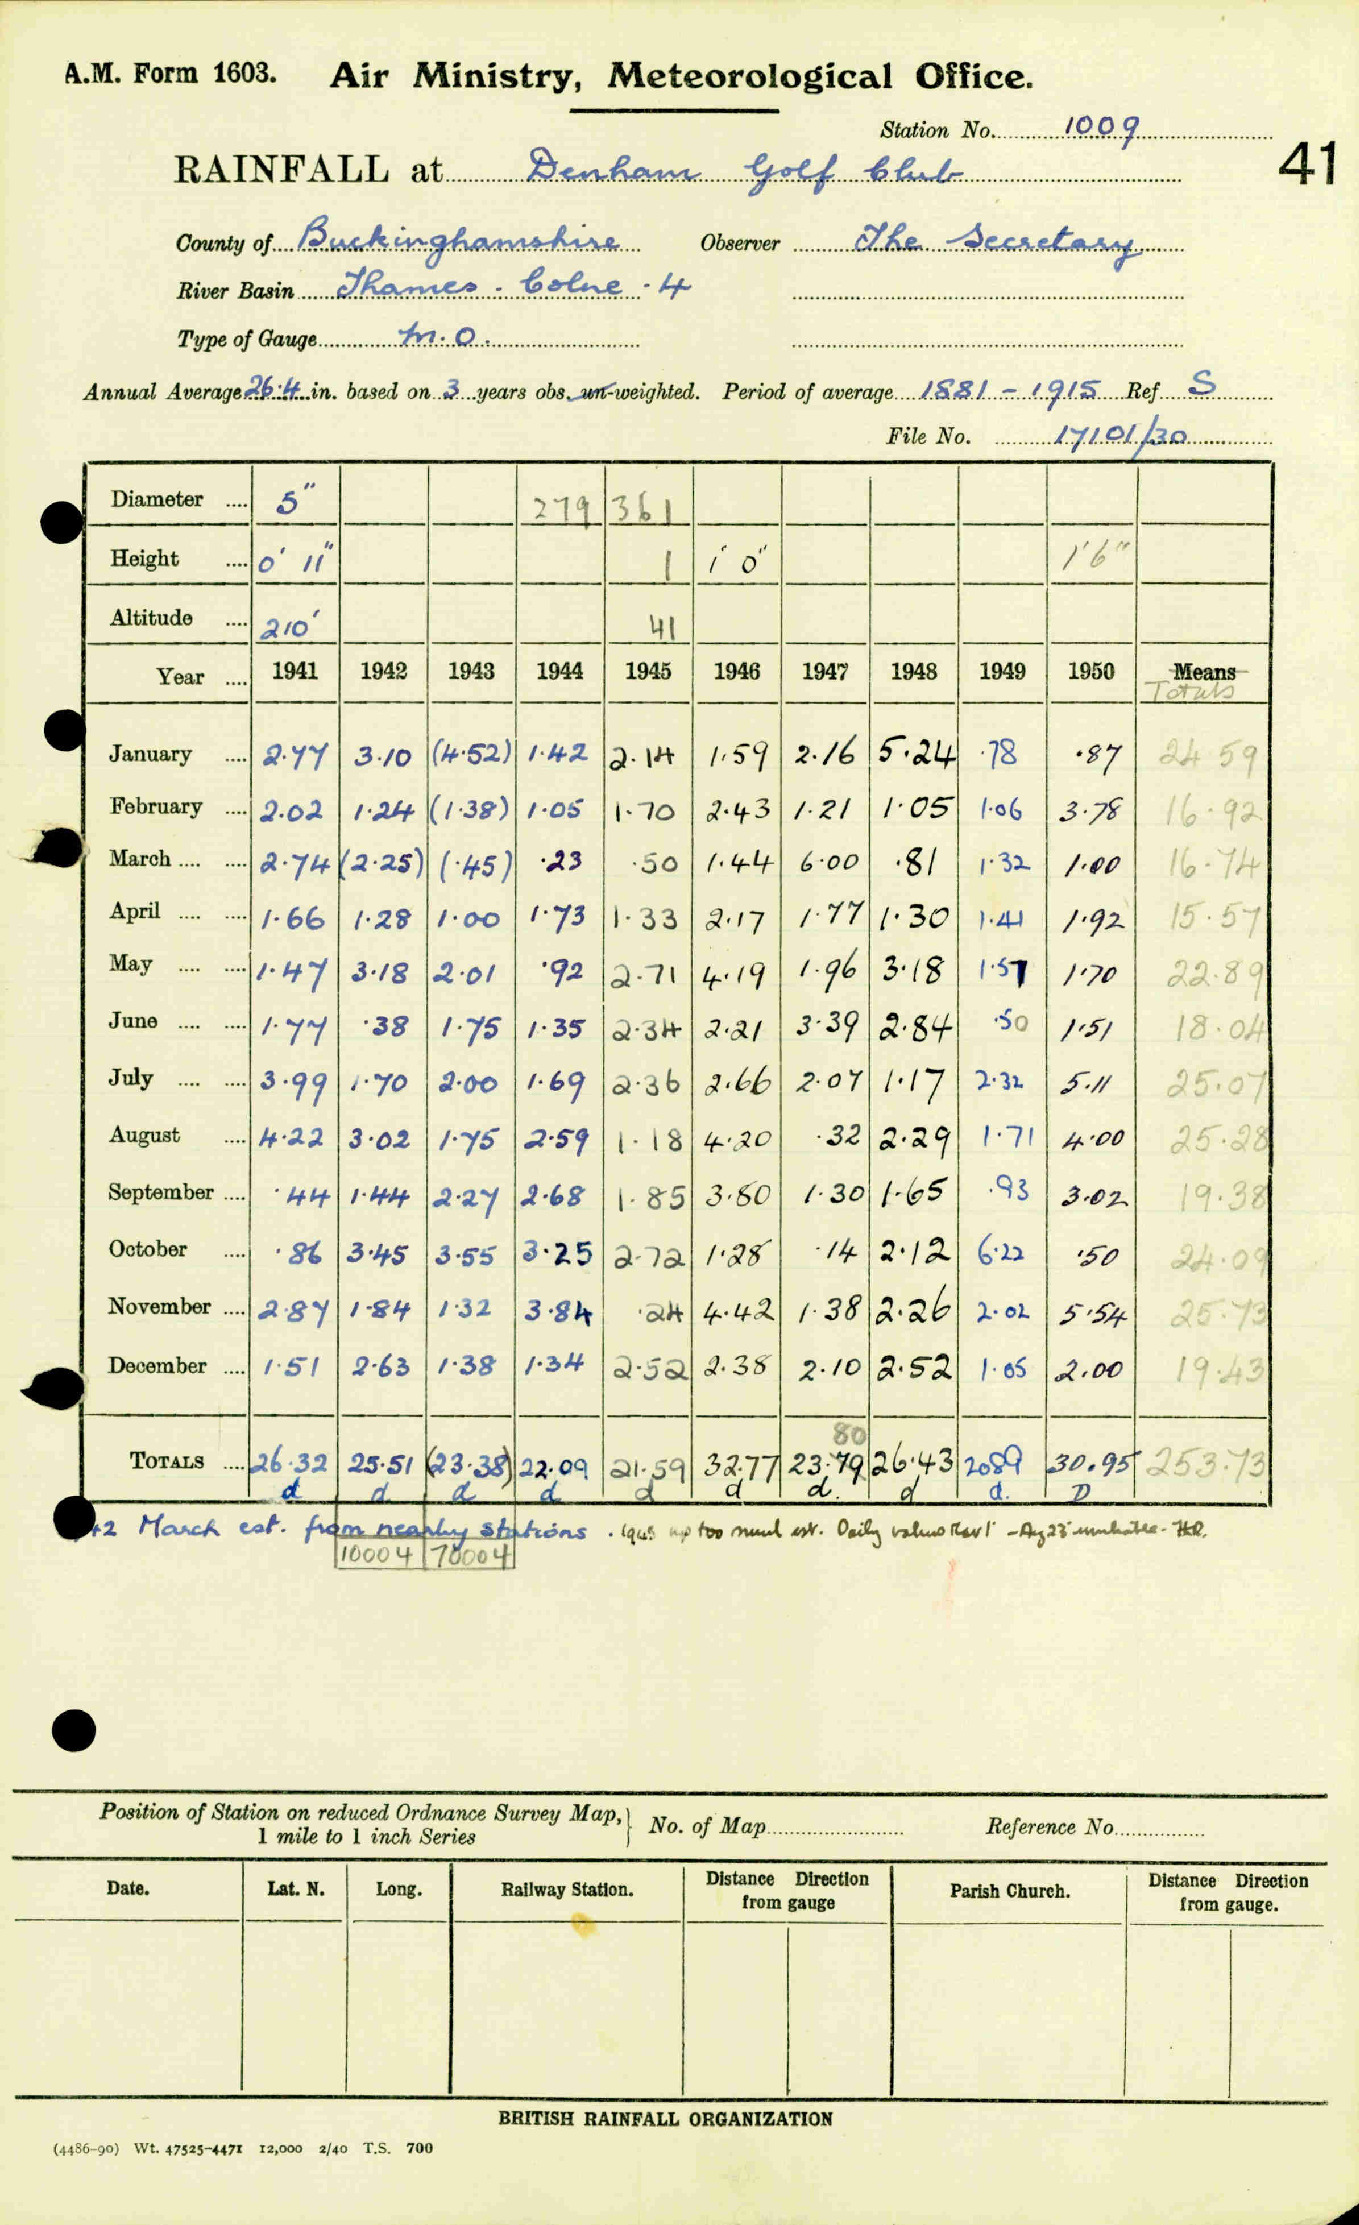 A.M. Form 1603. Air Ministry, Meteorological Office.
Station No. 1009
41
RAINFALL at Denham Golf Club
County of Buckinghamshire Observer The Secretary
River Basin Thames - Colne - 4
Type of Gauge M.O.
Annual Average 26.4 in. based on 3 years obs. un-weighted. Period of average 1881 - 1915 Ref S
File No. 17101/30
Diameter .... 5" 279 361
Height .... 0' 11" 1 1' 0" 1'6"
Altitude .... 210' 41
Year .... 1941 1942 1943 1944 1945 1946 1947 1948 1949 1950 Means
Totals
January .... 2.77 3.10 (4.52) 1.42 2.14 1.59 2.16 5.24 .78 .87 24.59
February .... 2.02 1.24 (1.38) 1.05 1.70 2.43 1.21 1.05 1.06 3.78 16.92
March .... .... 2.74 (2.25) (.45) .23 .50 1.44 6.00 .81 1.32 1.00 16.74
April .... .... 1.66 1.28 1.00 1.73 1.33 2.17 1.77 1.30 1.41 1.92 15.57
May .... .... 1.47 3.18 2.01 .92 2.71 4.19 1.96 3.18 1.57 1.70 22.89
June .... .... 1.77 .38 1.75 1.35 2.34 2.21 3.39 2.84 .50 1.51 18.04
July .... .... 3.99 1.70 2.00 1.69 2.36 2.66 2.07 1.17 2.32 5.11 25.07
August .... 4.22 3.02 1.75 2.59 1.18 4.20 .32 2.29 1.71 4.00 25.28
September .... .44 1.44 2.27 2.68 1.85 3.80 1.30 1.65 .93 3.02 19.38
October .... .86 3.45 3.55 3.25 2.72 1.28 .14 2.12 6.22 .50 24.09
November .... 2.87 1.84 1.32 3.84 .24 4.42 1.38 2.26 2.02 5.54 25.73
December .... 1.51 2.63 1.38 1.34 2.52 2.38 2.10 2.52 1.05 2.00 19.43
80
TOTALS .... 26.32 25.51 (23.38) 22.09 21.59 32.77 23.79 26.43 20.89 30.95 253.73
d d d d d d d. d d. D
42 March est. from nearby stations . Daily values
10004 70004
Position of Station on reduced Ordnance Survey Map, } No. of Map Reference No.
1 mile to 1 inch Series
Date. Lat. N. Long. Railway Station. Distance Direction from gauge Parish Church. Distance Direction from gauge.
BRITISH RAINFALL ORGANIZATION
(4486-90) Wt. 47525-4471 12,000 2/40 T.S. 700